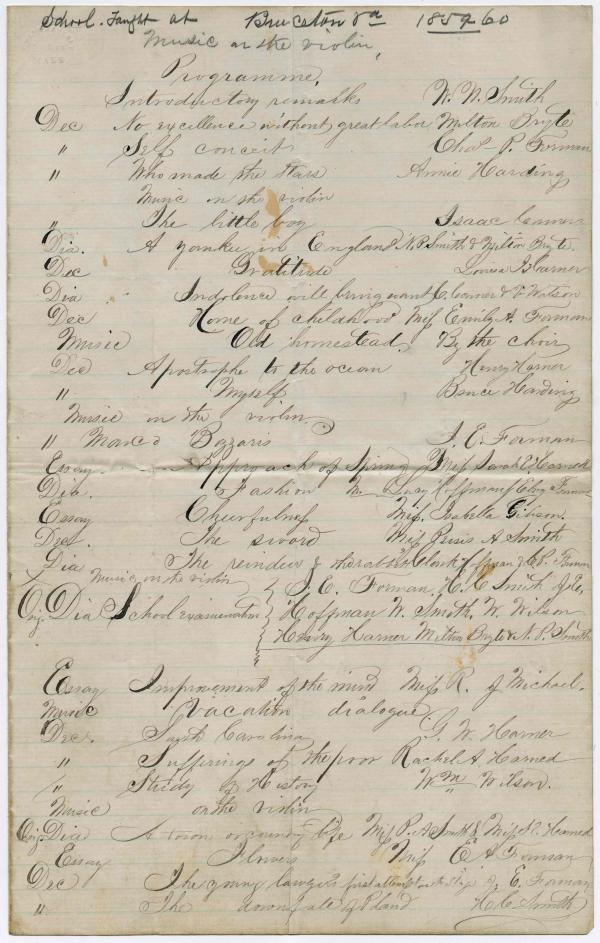 School Taught at Bruceton Va 1859-60
Music on the violin,
Programme,
Introductory remarks W. N. Smith
Dec No excellence without great labor Milton Bryte
" Self conceit Chas P. Forman
" Who made the stars Annie Harding
Music on the violin
" The little boy Isaac
Dia. A yankee in England N. P. Smith & Milton Bryte.
Dec Gratitude Louisa B. Harner
Dia Indolence will bring want & Watson
Dec Home of childhood Miss Emily A. Forman
Music Old homestead, By the choir
Dec Apostrophe to the ocean Henry Harner
" Myself Bruce Harding
Music on the violin
" Marco Bozzaris J. E. Forman
Essay Approach of Spring Miss Sarah E Harned
Dia. Fashion Lucy Hoffman
Essay Cheerfulness Miss. Isabella Gibson.
Dec. The sword Miss Persis A Smith
Dia The reindeer & the rabbit Clark Hoffman & C. P. Forman
Music on the violin
J. E. Forman, H. C Smith
Orig. Dia School examination Hoffman W. Smith, W. Wilson
Henry Harner Milton Bryte & N. P. Smith
Essay Improvement of the mind Miss R. J Michael.
Music Vacation dialogue
Dec. South Carolina G. W. Harner
" Sufferings of the poor Rachel A. Harned
" Study of History Wm Wilson.
Music on the violin
Orig. Dia A town or country life Miss P. A Smith & Miss S. E. Harned
Essay Flowers Miss E A Forman
Dec The young lawyers first attempt J. E. Forman
" The downfall of Poland H. C. Smith